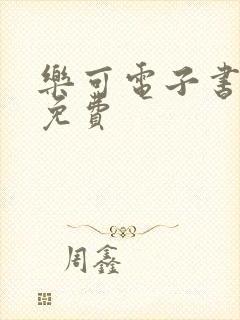 樂可電子書
免費
周鑫